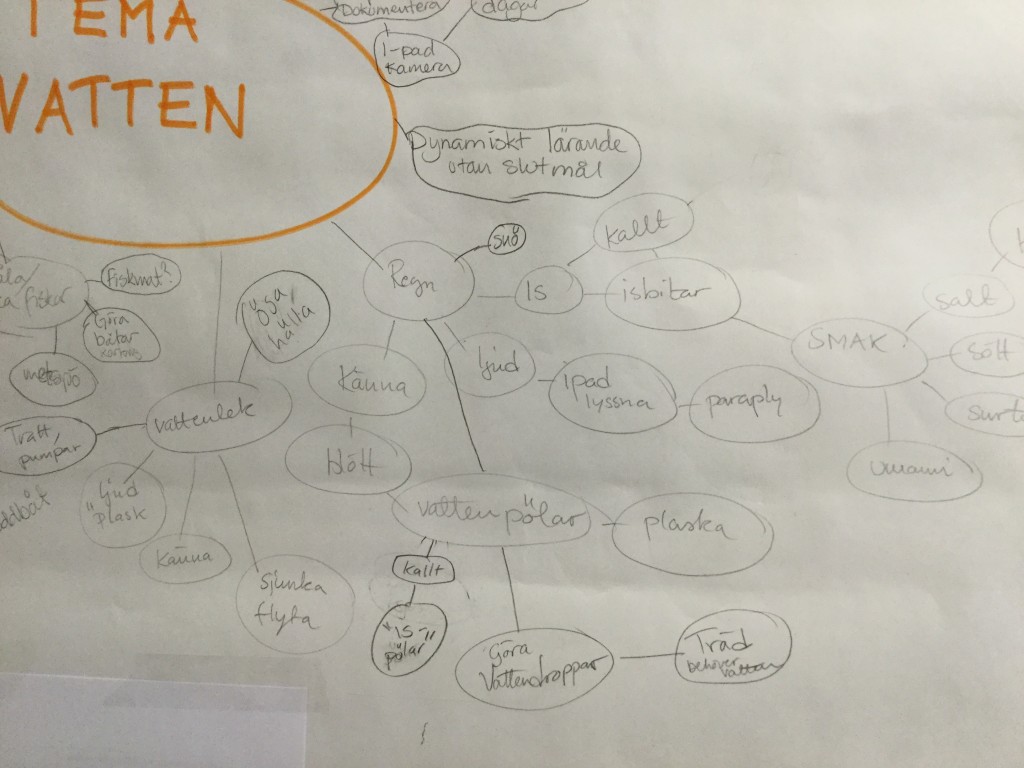 TEMA
VATTEN
Dokumentera
dagar
I-pad
kamera
Dynamiskt lärande
utan slutmål
Regn
snö
IS
kallt
isbitar
SMAK
salt
sött
surt
umami
ljud
ipad
lyssna
paraply
känna
blött
vattenpölar
plaska
kallt
"is"
pölar
Göra
vattendroppar
Träd
behöver
vatten
fiskar
Fiskmat?
Göra
båtar
kartong
ösa,
hälla
vattenlek
Tratt,
pumpar
ljud
"plask
känna
sjunka
flyta